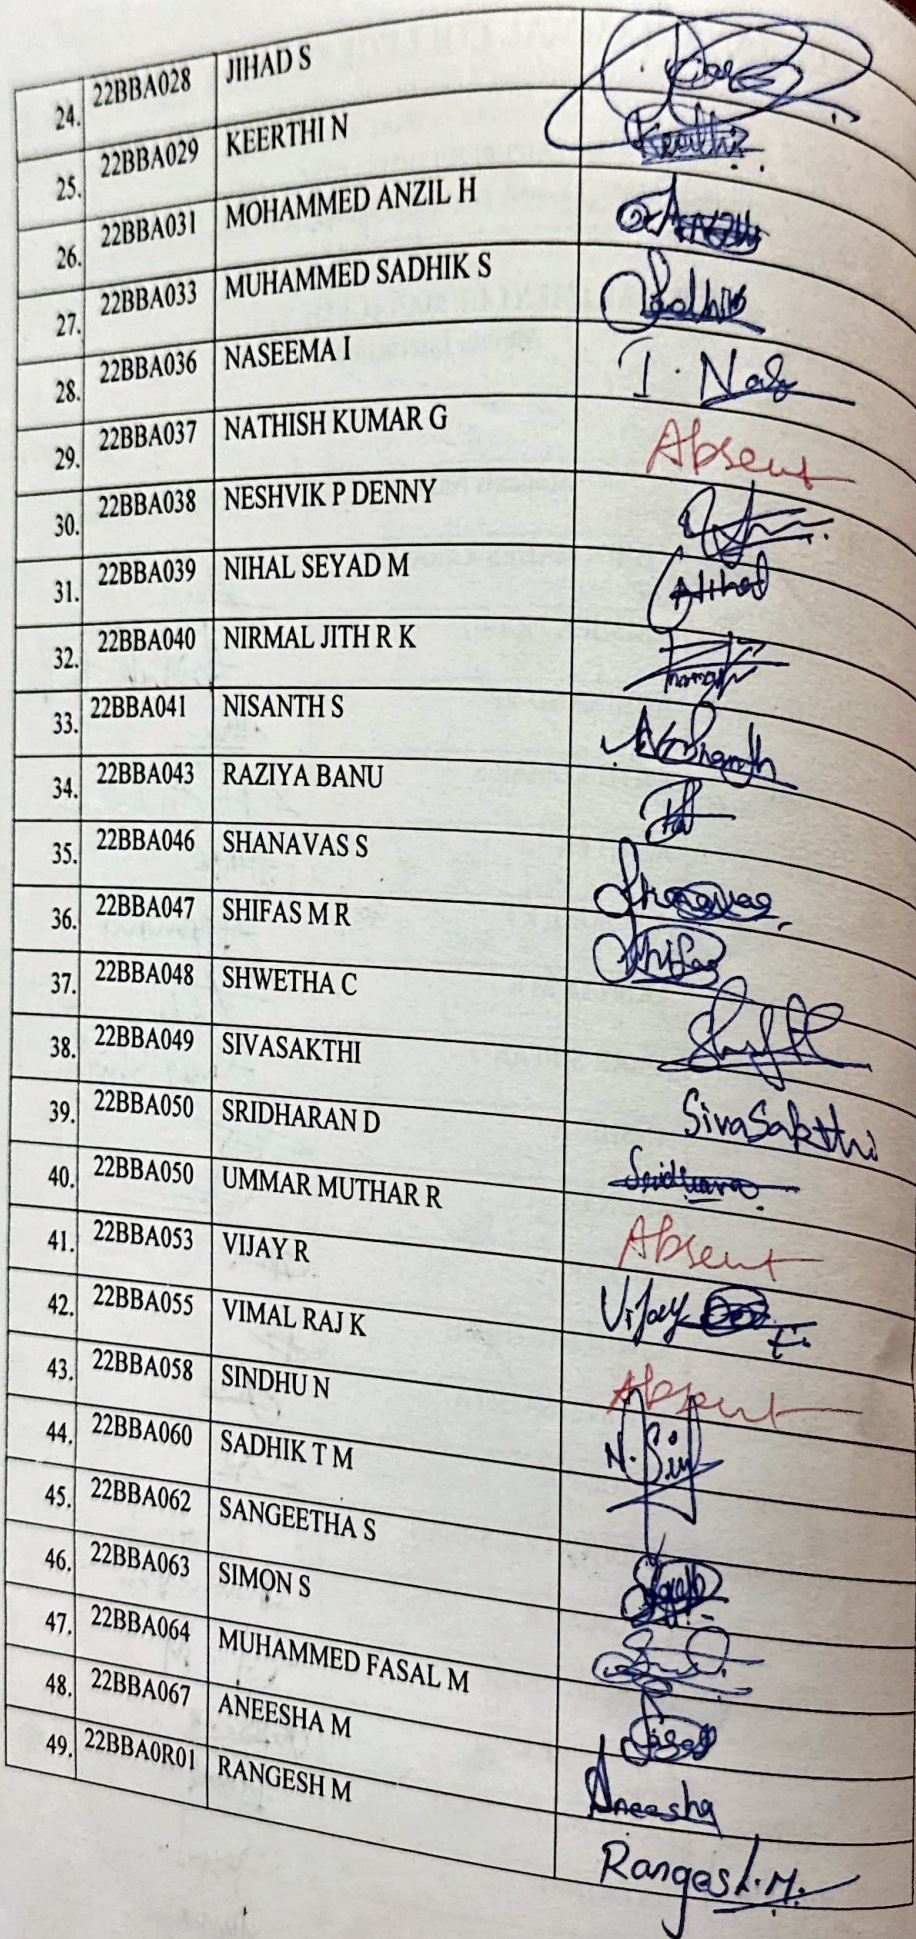 24. 22BBA028 JIHAD S
25. 22BBA029 KEERTHI N Keerthi
26. 22BBA031 MOHAMMED ANZIL H
27. 22BBA033 MUHAMMED SADHIK S Sadhik
28. 22BBA036 NASEEMA I I. Nas
29. 22BBA037 NATHISH KUMAR G Absent
30. 22BBA038 NESHVIK P DENNY
31. 22BBA039 NIHAL SEYAD M
32. 22BBA040 NIRMAL JITH R K
33. 22BBA041 NISANTH S
34. 22BBA043 RAZIYA BANU
35. 22BBA046 SHANAVAS S Shanavas
36. 22BBA047 SHIFAS M R Shifas
37. 22BBA048 SHWETHA C
38. 22BBA049 SIVASAKTHI SivaSakthi
39. 22BBA050 SRIDHARAN D
40. 22BBA050 UMMAR MUTHAR R Absent
41. 22BBA053 VIJAY R Vijay
42. 22BBA055 VIMAL RAJ K Absent
43. 22BBA058 SINDHU N N. Sin
44. 22BBA060 SADHIK T M
45. 22BBA062 SANGEETHA S
46. 22BBA063 SIMON S
47. 22BBA064 MUHAMMED FASAL M
48. 22BBA067 ANEESHA M Aneesha
49. 22BBA0R01 RANGESH M Rangesh.M.